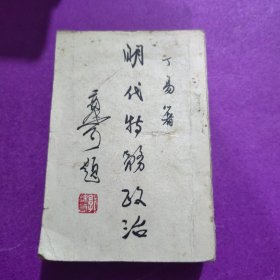 丁易著
明代特務政治
題